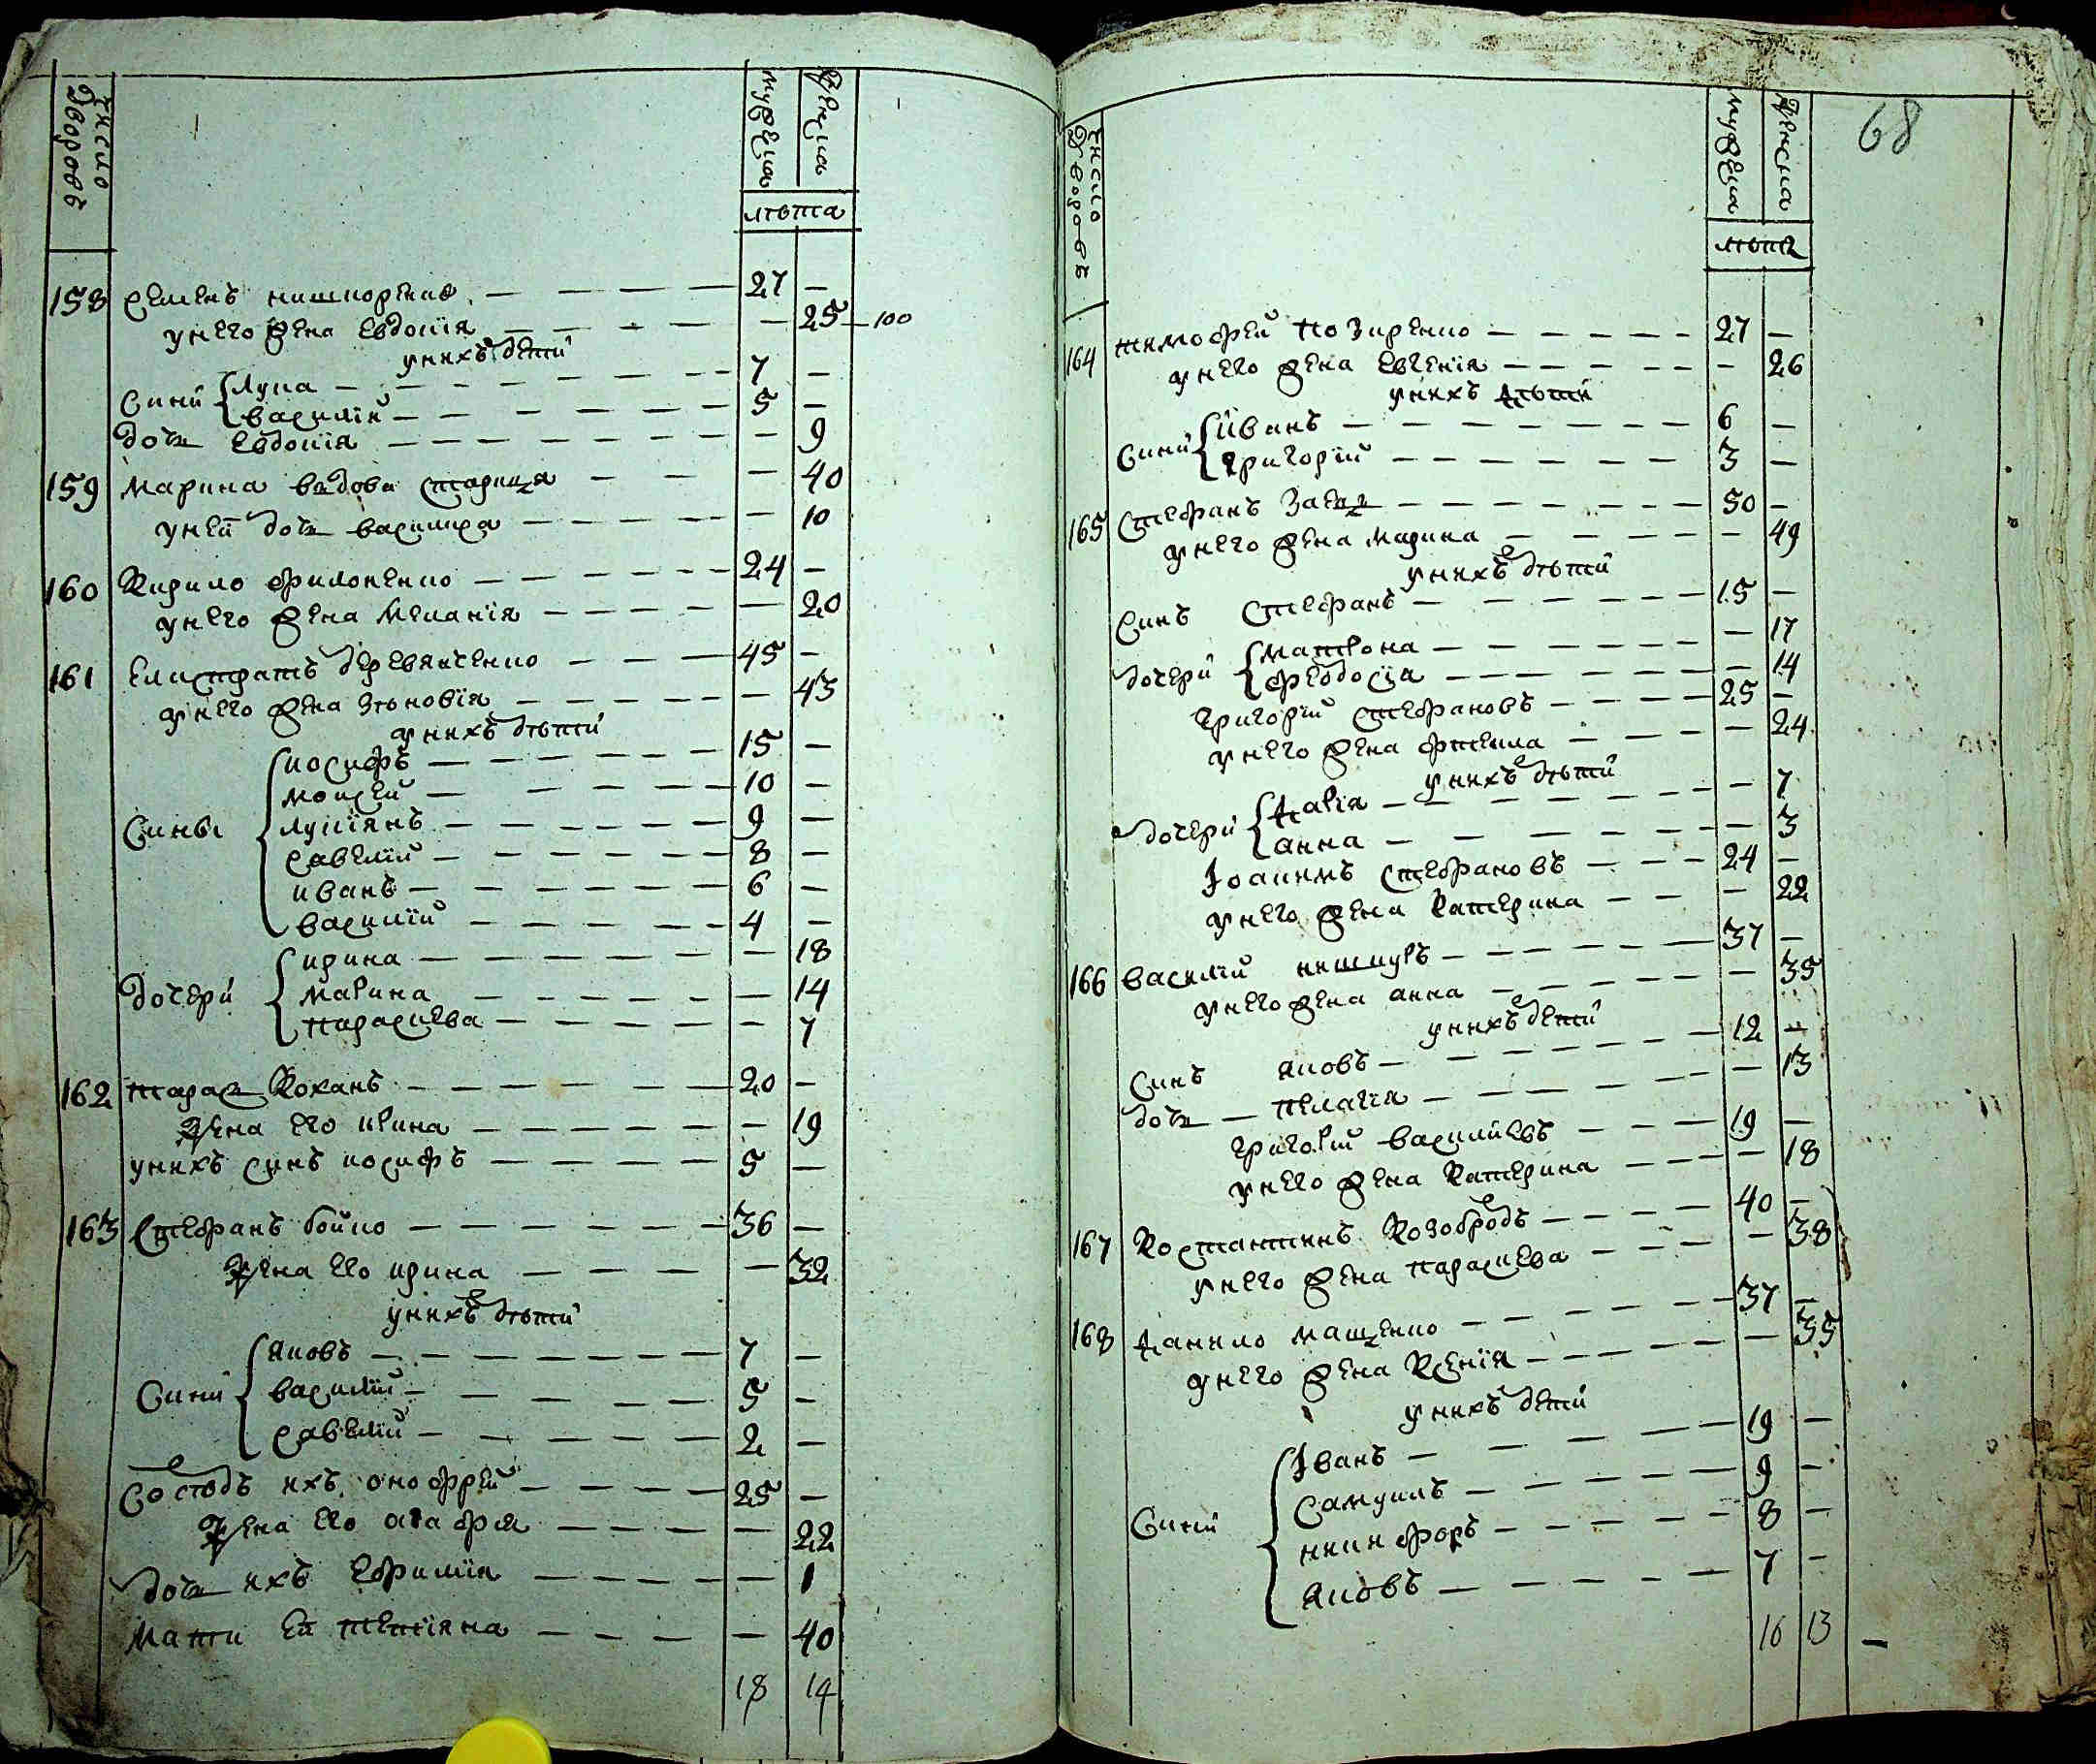 число дворовъ
мужеска
женска
лѣта
158 Семенъ нишпоренко 27 —
у него жена Евдокія — 25 — 100
у нихъ дети
Сини Лука 7 —
василій 5 —
дочь Евдокія — 9
159 Марина вдова старица — 40
у ней дочь василиса — 10
160 Кирило филоненко 24 —
у него жена Меланія — 20
161 Елистратъ деревянченко 45 —
у него жена Зѣновія — 43
у нихъ дѣти
иосифъ 15 —
моисей 10 —
Сины лукіянъ 9 —
савелій 8 —
иванъ 6 —
василій 4 —
ирина — 18
дочери марина — 14
параскева — 7
162 тарас Коханъ 20 —
жена его ирина — 19
у нихъ синъ иосифъ 5 —
163 Стефанъ бойко 36 —
жена его ирина — 32
у нихъ дѣти
яковъ 7 —
Сини василій 5 —
савелій 2 —
Сосѣдъ ихъ онофрей 25 —
жена его агафія — 22
дочь ихъ Ефимія — 1
мати ей тетіяна — 40
18 14
68
число дворовъ
мужеска
женска
лѣта
164 тимофей позиренко 27 —
у него жена Евгенія — 26
у нихъ дѣти
Сини иванъ 6 —
григорій 3 —
165 Стефанъ Заец 50 —
у него жена марина — 49
у нихъ дѣти
Синъ Стефанъ 15 —
дочери матрона — 17
феодосія — 14
григорій стефановъ 25 —
у него жена фтекла — 24
у нихъ дѣти
дочери дарія — 7
анна — 3
Іоакимъ стефановъ 24 —
у него жена Катерина — 22
166 василій кишкуръ 37 —
у него жена анна — 35
у нихъ дети
Синъ яковъ 12 —
дочь — пелагія — 13
григорій василиевъ 19 —
у него жена Катерина — 18
167 Костантинъ Козобродъ 40 —
у него жена параскева — 38
168 данило мащенко 37 —
у него жена Ксенія — 35
у нихъ дети
Іванъ 19 —
Самуилъ 9 —
Сини никифоръ 8 —
яковъ 7 —
16 13 —